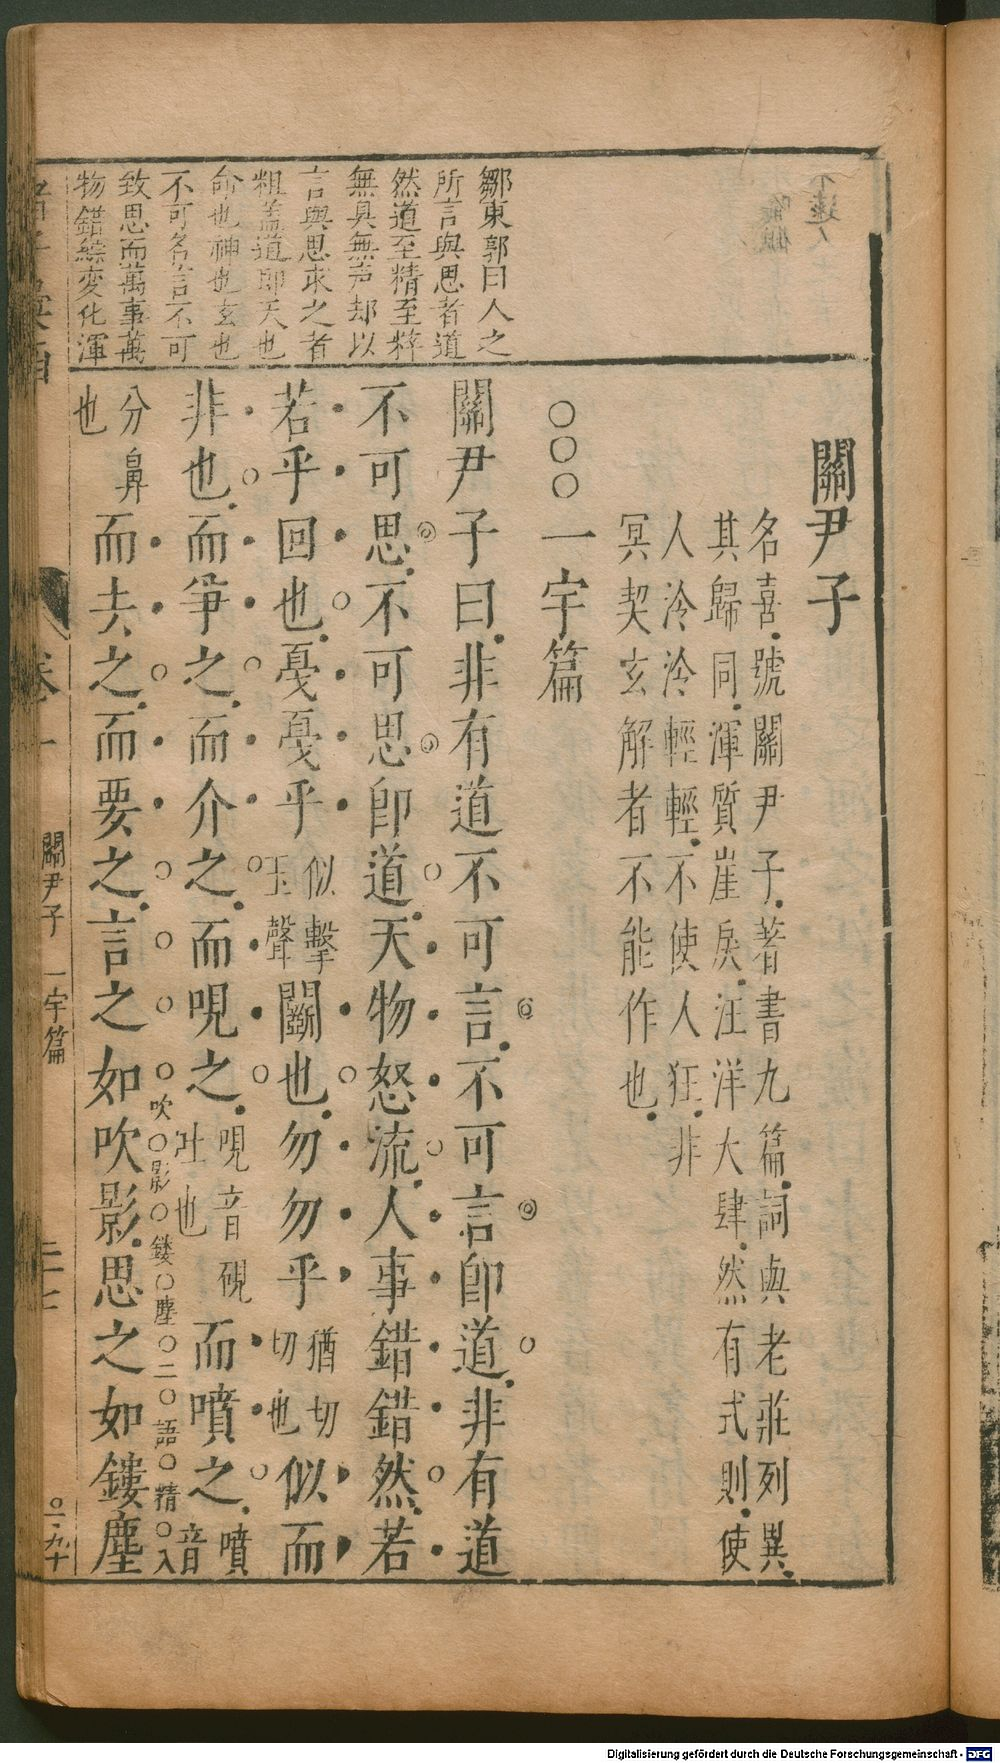 鄒東郭曰人之
所言與思者道
然道至精至粹
無臭無声却以
言與思求之者
粗盖道即天也
命也神也玄也
不可名言不可
致思而萬事萬
物錯綜変化渾
關尹子
名喜號關尹子著書九篇詞與老莊列異
其歸同渾質崖戾汪洋大肆然有式則使
人泠泠輕輕不使人狂非
冥契玄解者不能作也
○○○一宇篇
關尹子曰非有道不可言不可言即道非有道
不可思不可思即道天物怒流人事錯錯然若
若乎回也戛戛乎似擊玉聲鬬也勿勿乎猶切切也似而
非也而爭之而介之而哯之哯音硯吐也而噴之噴音
分鼻也而去之而要之言之如吹影思之如鏤塵
吹○影○鏤○塵○二○語○精○入
卷一 關尹子 一宇篇 二七
Digitalisierung gefördert durch die Deutsche Forschungsgemeinschaft - DFG